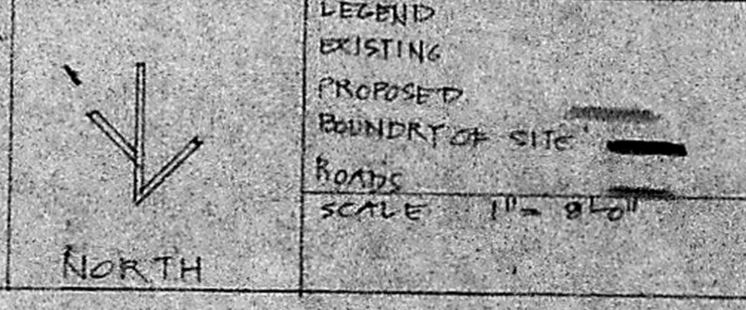 LEGEND
EXISTING
PROPOSED
BOUNDRY OF SITE
ROADS
SCALE 1"= 8'-0"
NORTH